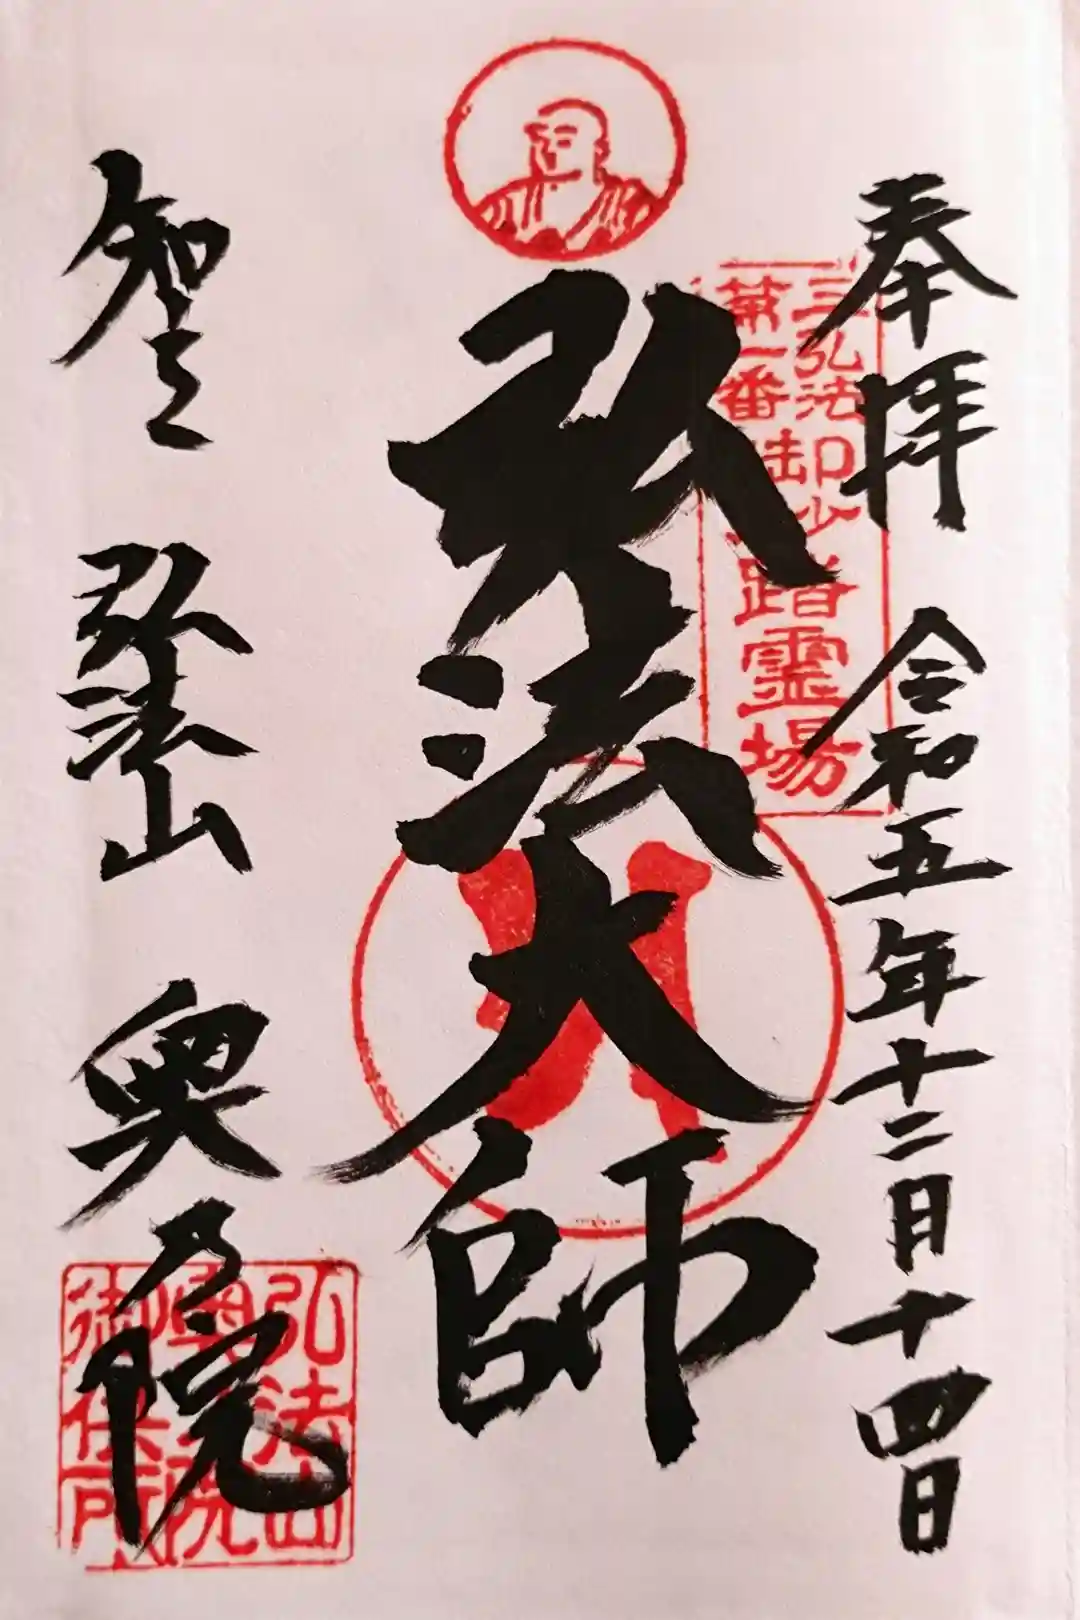 奉拝 令和五年十二月十四日
三弘法
第一番
霊場
弘法大師
知立 弘法山 奥乃院
弘法山
奥之院
御保所